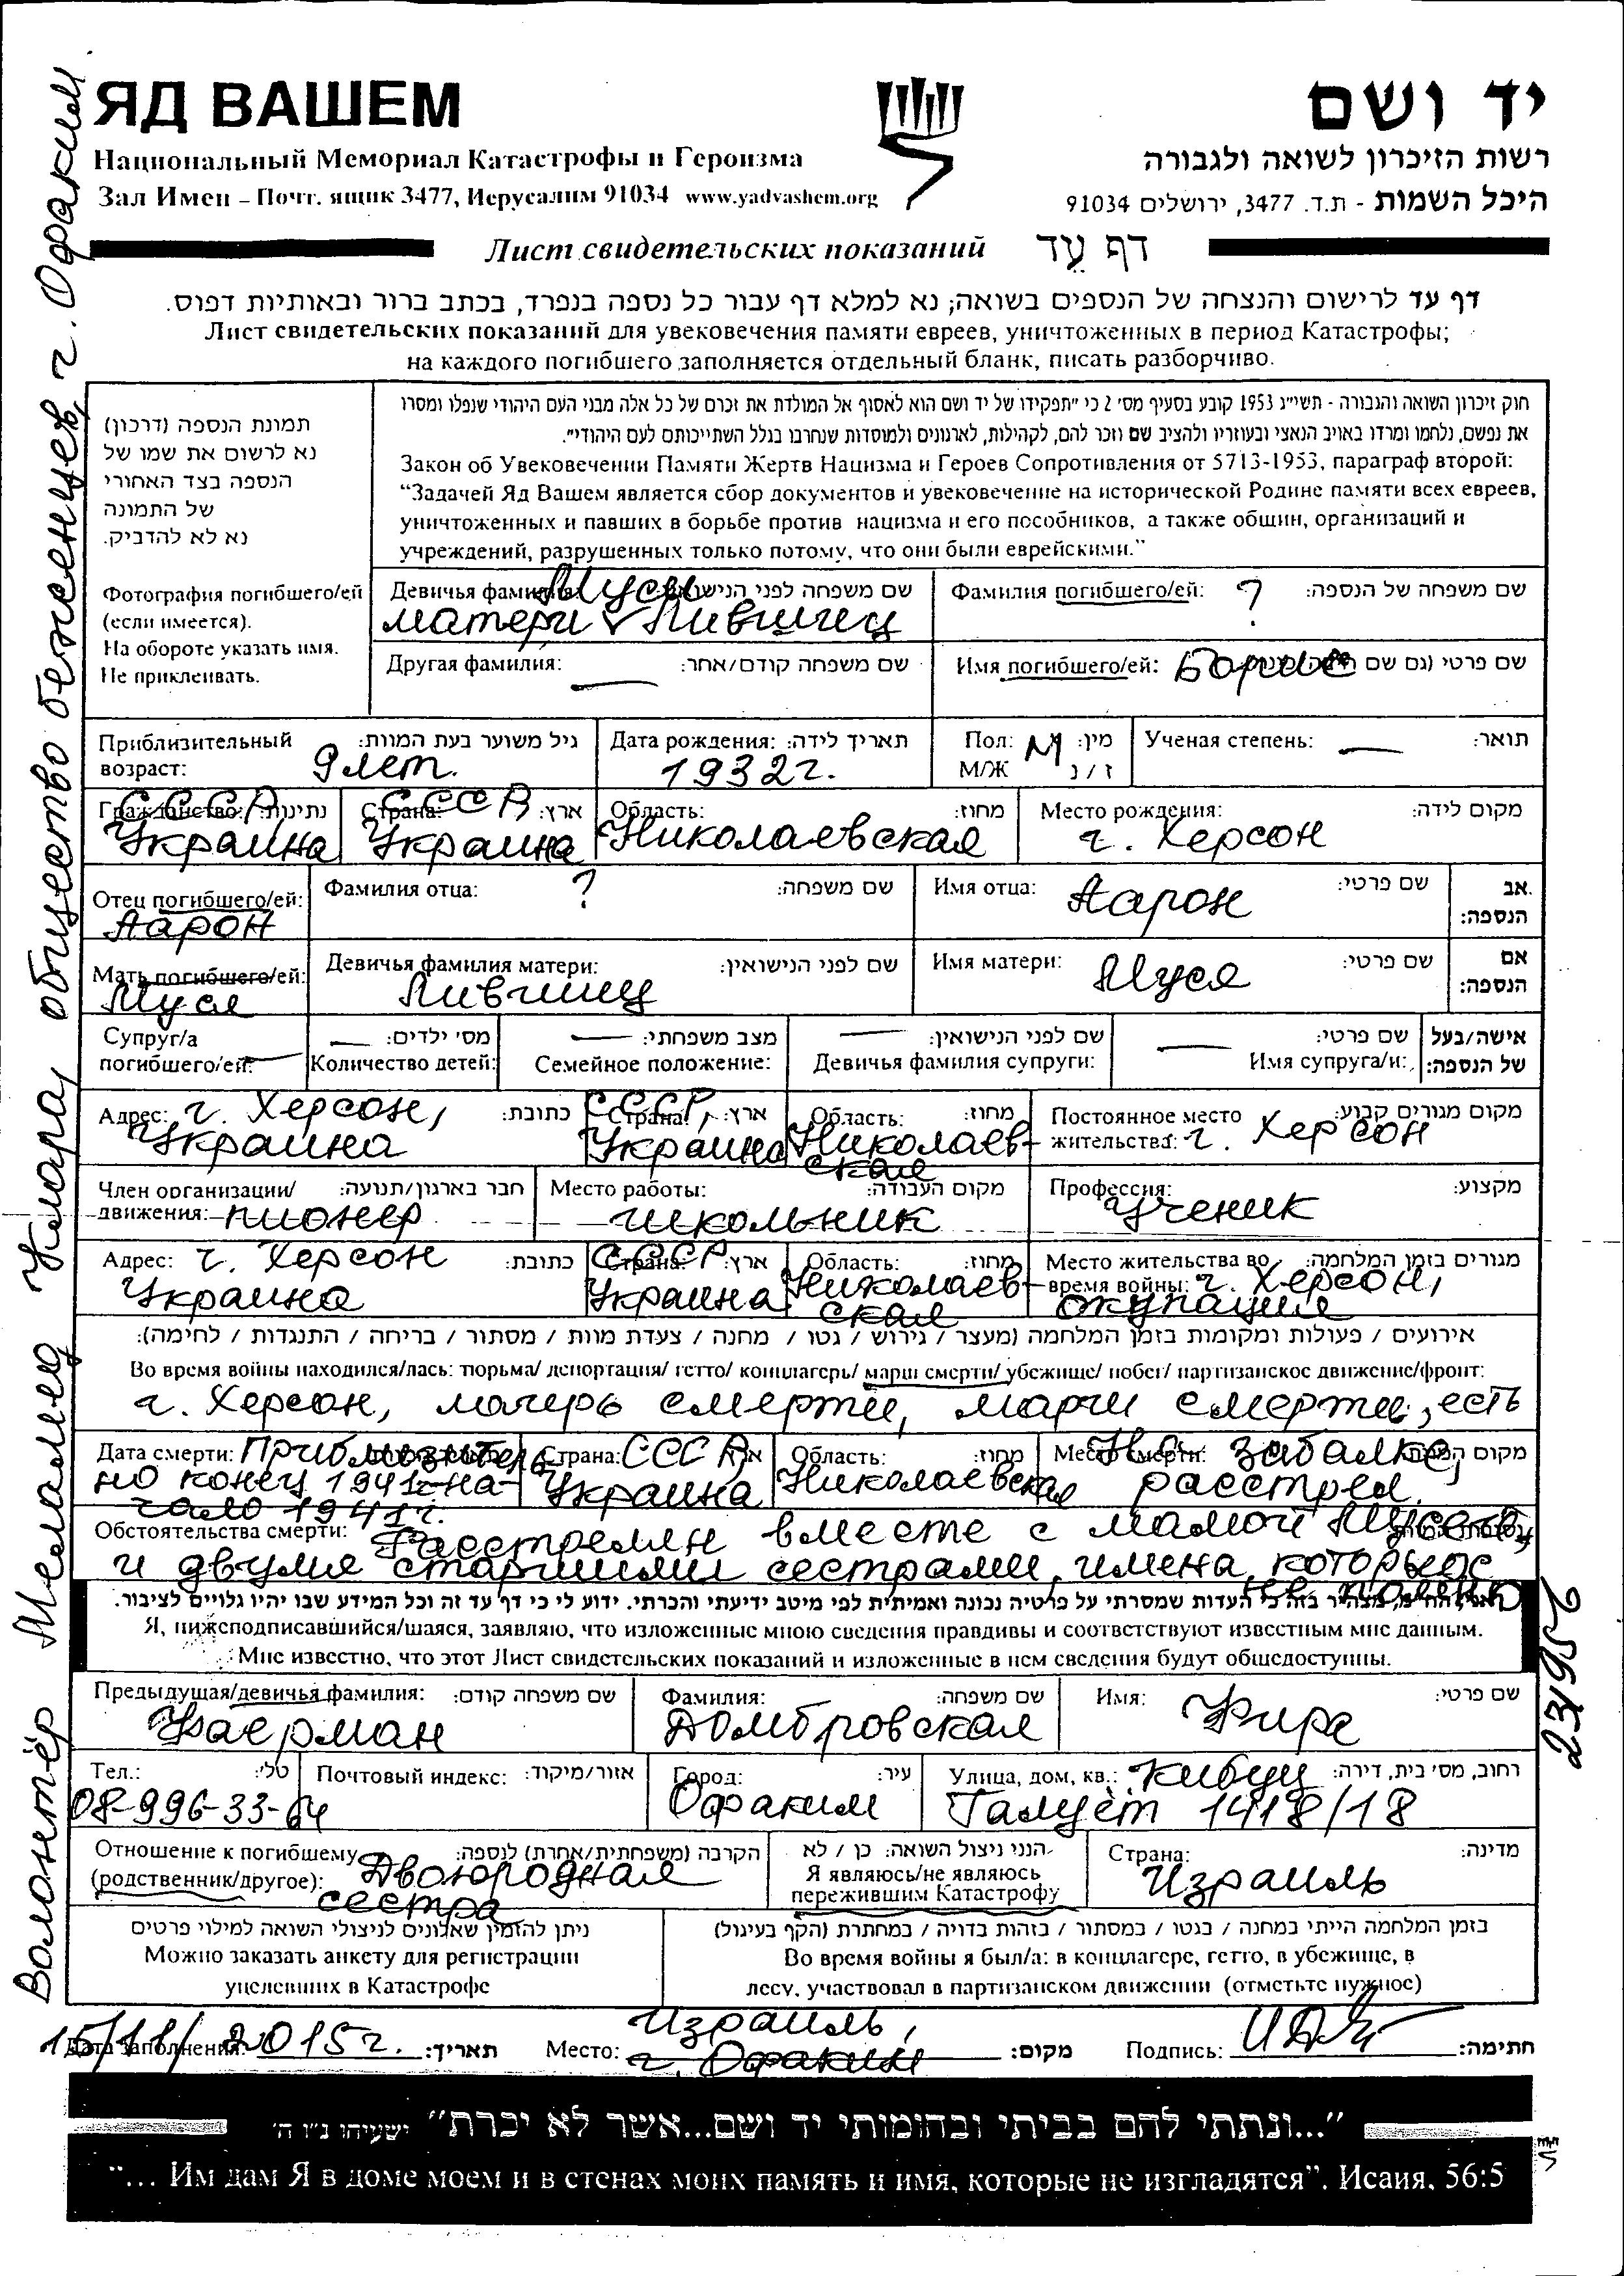 ЯД ВАШЕМ
Национальный Мемориал Катастрофы и Героизма
Зал Имен – Почт. ящик 3477, Иерусалим 91034 www.yadvashem.org
יד ושם
רשות הזיכרון לשואה ולגבורה
היכל השמות - ת.ד. 3477, ירושלים 91034
Лист свидетельских показаний דף עֵד
דף עד לרישום והנצחה של הנספים בשואה; נא למלא דף עבור כל נספה בנפרד, בכתב ברור ובאותיות דפוס.
Лист свидетельских показаний для увековечения памяти евреев, уничтоженных в период Катастрофы;
на каждого погибшего заполняется отдельный бланк, писать разборчиво.
תמונת הנספה (דרכון)
נא לרשום את שמו של
הנספה בצד האחורי
של התמונה
נא לא להדביק.
Фотография погибшего/ей
(если имеется).
На обороте указать имя.
Не приклеивать.
חוק זיכרון השואה והגבורה - תשי"ג 1953 קובע בסעיף מס' 2 כי "תפקידו של יד ושם הוא לאסוף אל המולדת את זכרם של כל אלה מבני העם היהודי שנפלו ומסרו
את נפשם, נלחמו ומרדו באויב הנאצי ובעוזריו ולהציב שם וזכר להם, לקהילות, לארגונים ולמוסדות שנחרבו בגלל השתייכותם לעם היהודי".
Закон об Увековечении Памяти Жертв Нацизма и Героев Сопротивления от 5713-1953, параграф второй:
“Задачей Яд Вашем является сбор документов и увековечение на исторической Родине памяти всех евреев,
уничтоженных и павших в борьбе против нацизма и его пособников, а также общин, организаций и
учреждений, разрушенных только потому, что они были еврейскими.”
Девичья фамилия: Муси שם משפחה לפני הנישואין:
матери Лившиец
Фамилия погибшего/ей: ? שם משפחה של הנספה:
Другая фамилия: — שם משפחה קודם/אחר:
Имя погибшего/ей: Борис שם פרטי (גם שם
Приблизительный גיל משוער בעת המוות:
возраст: 9 лет.
Дата рождения: תאריך לידה:
1932г.
Пол: М מין:
М/Ж ז / נ
Ученая степень: — תואר:
Гражданство: СССР, נתינות:
Украина
Страна: СССР, ארץ:
Украина
Область: מחוז:
Николаевская
Место рождения: מקום לידה:
г. Херсон
Отец погибшего/ей:
Аарон
Фамилия отца: ? שם משפחה:
Имя отца: Аарон שם פרטי:
אב
הנספה:
Мать погибшего/ей:
Муся
Девичья фамилия матери: שם לפני הנישואין:
Лившиц
Имя матери: Муся שם פרטי:
אם
הנספה:
Супруг/а
погибшего/ей: —
מס' ילדים: —
Количество детей:
מצב משפחתי: —
Семейное положение:
שם לפני הנישואין: —
Девичья фамилия супруги:
שם פרטי: —
Имя супруга/и:
אישה/בעל
של הנספה:
Адрес: г. Херсон, כתובת:
Украина
Страна: СССР, ארץ:
Украина
Область: מחוז:
Николаев-
ская
Постоянное место מקום מגורים קבוע:
жительства: г. Херсон
Член организации/ חבר בארגון/תנועה:
движения: пионер
Место работы: מקום העבודה:
школьник
Профессия: מקצוע:
ученик
Адрес: г. Херсон כתובת:
Украина
Страна: СССР ארץ:
Украина
Область: מחוז:
Николаев-
ская
Место жительства во מגורים בזמן המלחמה:
время войны: г. Херсон,
окупация
אירועים / פעולות ומקומות בזמן המלחמה (מעצר / גירוש / גטו / מחנה / צעדת מוות / מסתור / בריחה / התנגדות / לחימה):
Во время войны находился/лась: тюрьма/ депортация/ гетто/ концлагерь/ марш смерти/ убежище/ побег/ партизанское движение/фронт:
г. Херсон, лагерь смерти, марш смерти, есть
Дата смерти: Приблизитель-
но конец 1941-на-
чало 1941г.
Страна: СССР,
Украина
Область: מחוז:
Николаевская
Место смерти: На забалке, מקום
расстрел.
Обстоятельства смерти: Расстрелян вместе с мамой Мусей,
и двумя старшими сестрами, имена которых
не помню
אני, הח"מ, מצהיר בזה כי העדות שמסרתי על פרטיה נכונה ואמיתית לפי מיטב ידיעתי והכרתי. ידוע לי כי דף עד זה וכל המידע שבו יהיו גלויים לציבור.
Я, нижеподписавшийся/шаяся, заявляю, что изложенные мною сведения правдивы и соответствуют известным мне данным.
Мне известно, что этот Лист свидетельских показаний и изложенные в нем сведения будут общедоступны.
Предыдущая/девичья фамилия: שם משפחה קודם:
Фаерман
Фамилия: שם משפחה:
Домбровская
Имя: Фира שם פרטי:
Тел.: טל':
08-996-33-64
Почтовый индекс: אזור/מיקוד:
Город: עיר:
Офаким
Улица, дом, кв.: Кибуц רחוב, מס' בית, דירה:
Галуёт 1418/18
Отношение к погибшему הקרבה (משפחתית/אחרת) לנספה:
(родственник/другое): Двоюродная
сестра
הנני ניצול השואה: כן / לא
Я являюсь/не являюсь
пережившим Катастрофу
Страна: מדינה:
Израиль
ניתן להזמין שאלונים לניצולי השואה למילוי פרטים
Можно заказать анкету для регистрации
уцелевших в Катастрофе
בזמן המלחמה הייתי במחנה / בגטו / במסתור / בזהות בדויה / במחתרת (הקף בעיגול)
Во время войны я был/а: в концлагере, гетто, в убежище, в
лесу, участвовал в партизанском движении (отметьте нужное)
Дата заполнения: 15/11/2015г. תאריך:
Место: Израиль, г. Офаким מקום:
Подпись: חתימה:
"...ונתתי להם בביתי ובחומותי יד ושם...אשר לא יכרת" ישעיהו נ"ו ה'
“... Им дам Я в доме моем и в стенах моих память и имя, которые не изгладятся”. Исаия, 56:5
Волонтёр Меламед Клара, общество беженцев, г. Офаким
231956